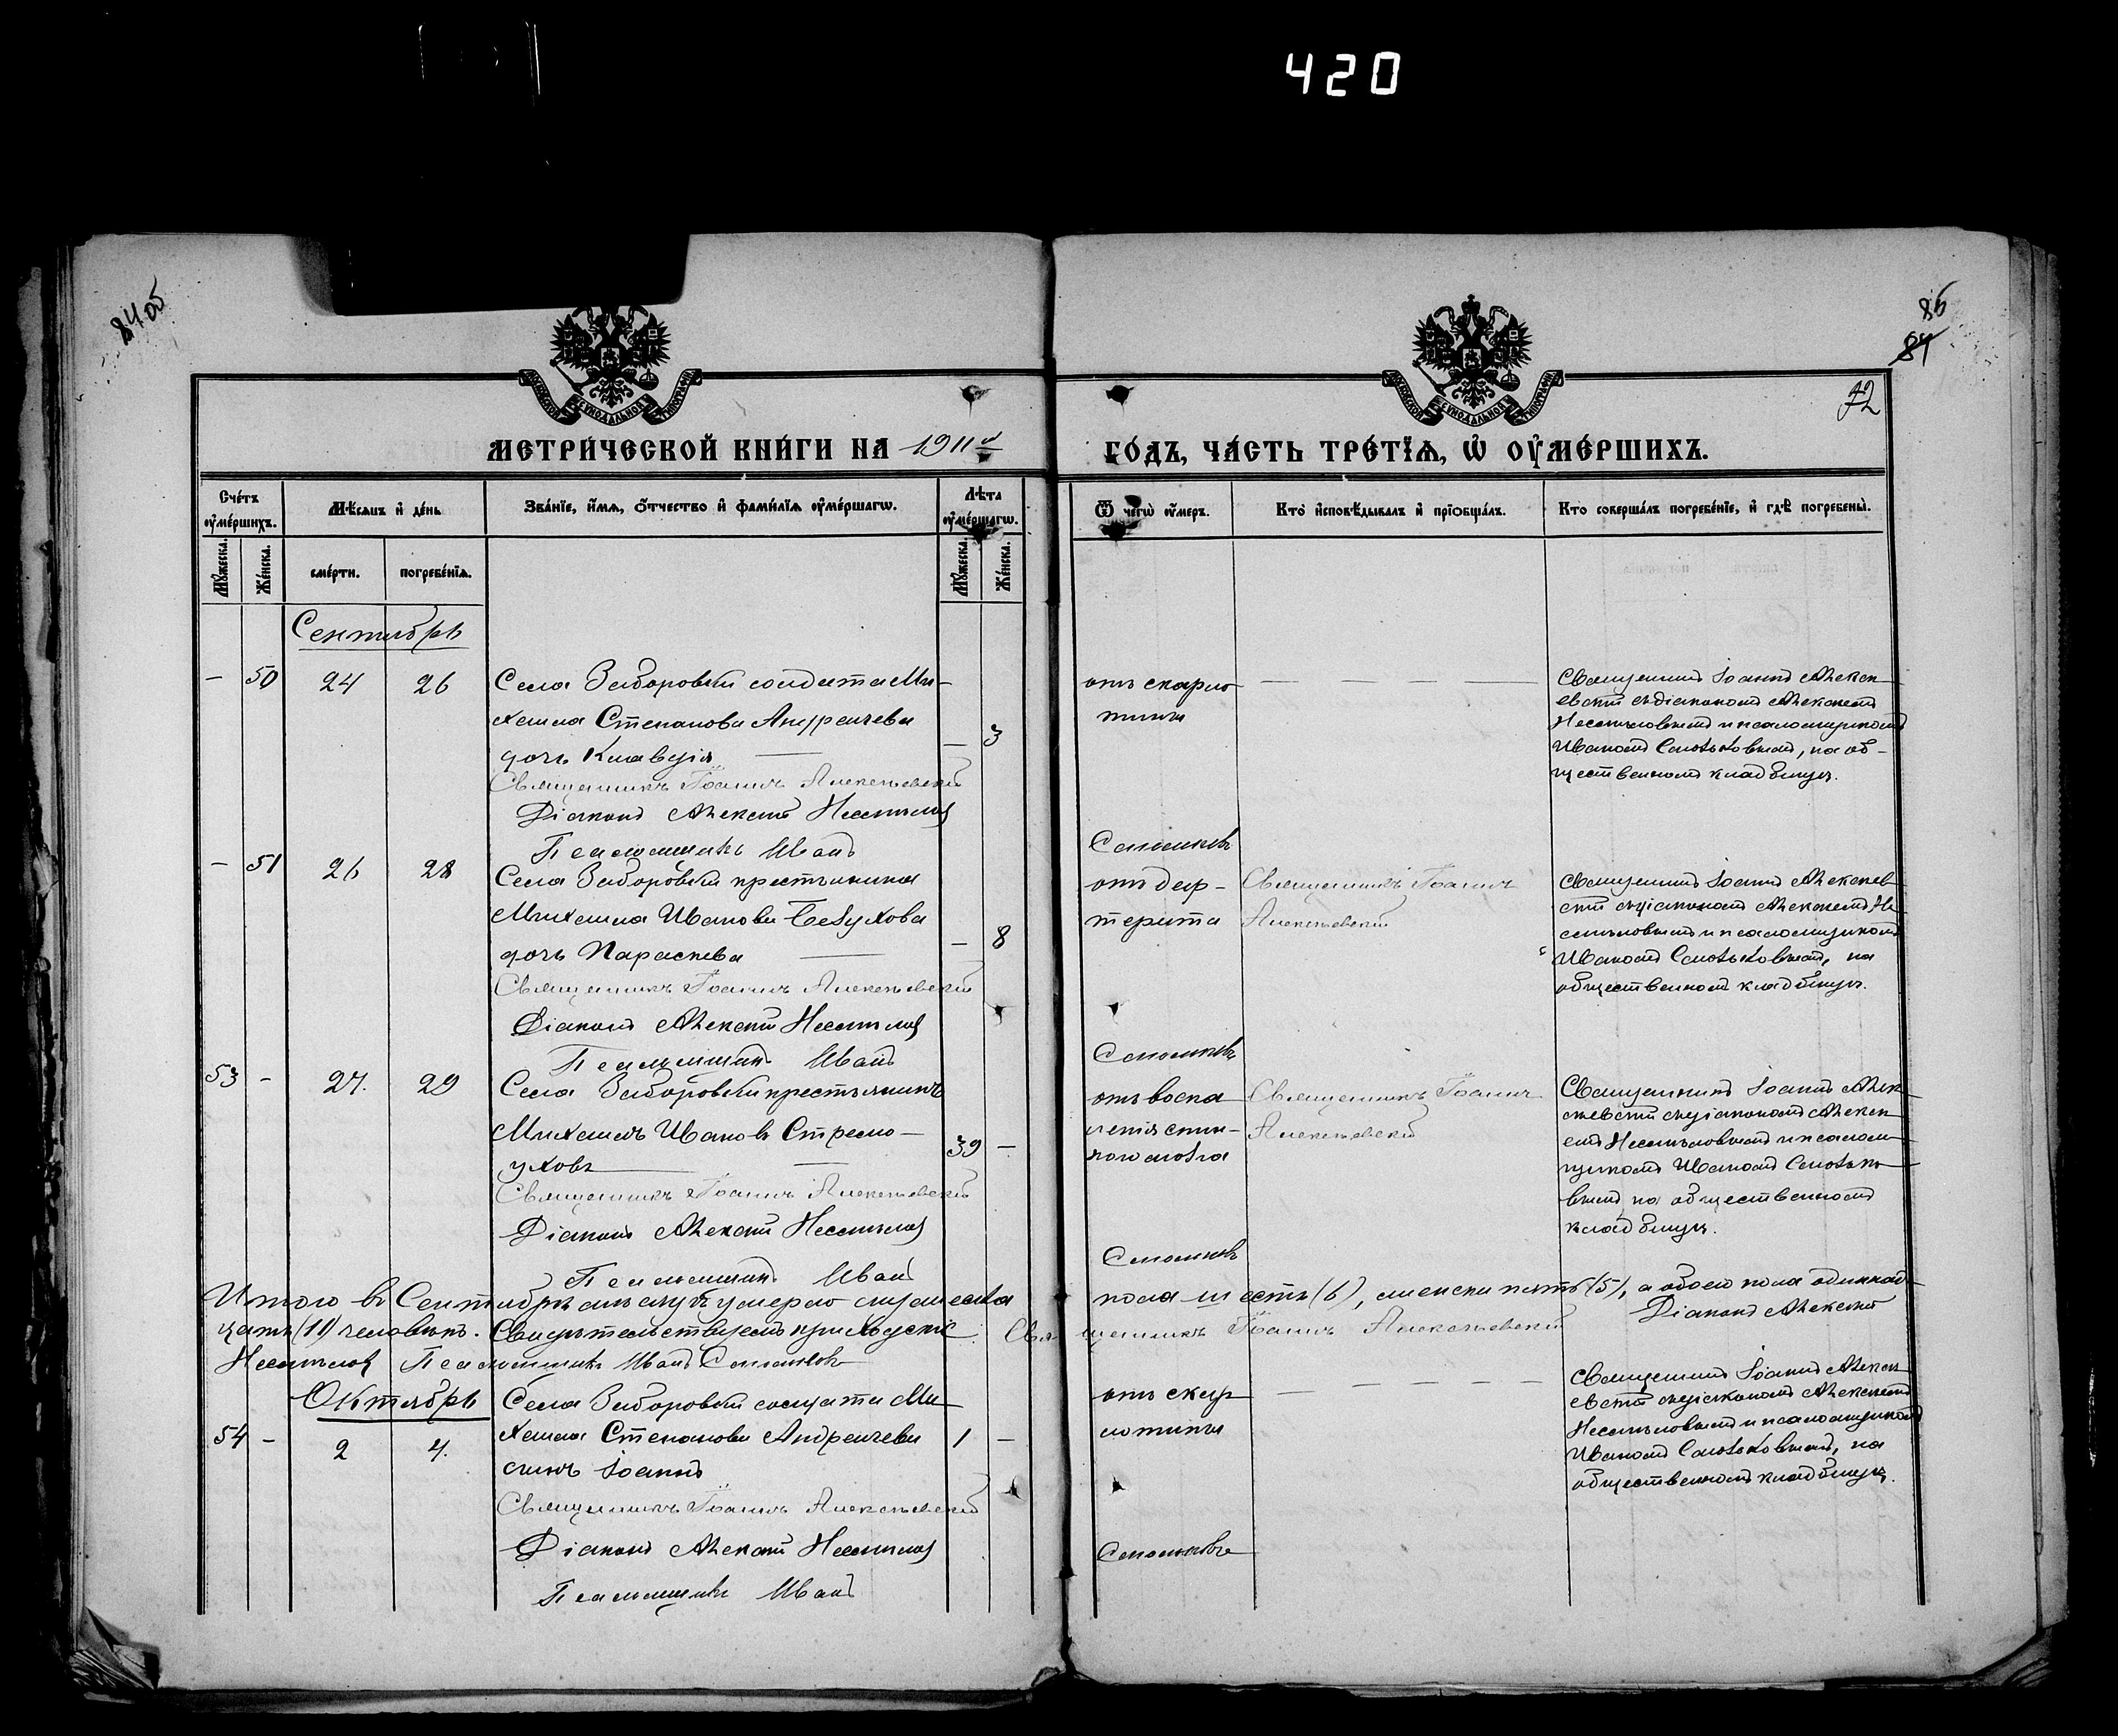 420
84 об
86
84
72
МЕТРИ́ЧЕСКОЙ КНИ́ГИ НА 1911й
ГО́ДЪ, ЧА́СТЬ ТРЕ́ТЇѦ, Ѡ҆ ОУ҆МЕ́РШИХЪ.
Сче́тъ оу҆ме́ршихъ.
Мѣ́сѧцъ и҆ де́нь
Зва́нїе, и҆́мѧ, ѻ҆́тчество и҆ фамилїѧ оу҆ме́ршагѡ.
Лѣ́та оу҆ме́ршагѡ.
Ѿ чегѡ̀ оу҆́меръ.
Кто̀ и҆сповѣ́дывалъ и҆ прїѡбща́лъ.
Кто соверша́лъ погребе́нїе, и҆ гдѣ̀ погребены̀.
Мꙋ́жеска.
Же́нска.
сме́рти.
погребе́нїѧ.
Мꙋ́жеска.
Же́нска.
Сентябрь
– 50 24 26
Села Заборовки солдата Ми-
хаила Степанова Андреичева
дочь Клавдія
– 3
Священникъ Іоаннъ Алексѣевскій
Діаконъ Алексѣй Несмѣлов
Псаломщикъ Иванъ
Самойловъ
отъ скарла
тины
Священникъ Іоаннъ Алексѣ
евскій съ діакономъ Алексѣемъ
Несмѣловымъ и псаломщикомъ
Иваномъ, на об-
щественномъ кладбищѣ.
– 51 26 28
Села Заборовки крестьянина
Михаила Иванова Безухова
дочь Параскева
– 8
Священникъ Іоаннъ Алексѣевскій
Діаконъ Алексѣй Несмѣлов
Псаломщикъ Иванъ
отъ диф-
терита
Священникъ Іоаннъ
Алексѣевскій
Священникъ Іоаннъ Алексѣев
скій съ діакономъ Алексѣемъ Не
смѣловымъ и псаломщикомъ
Иваномъ, на
общественномъ кладбищѣ.
53 – 27. 29
Села Заборовки крестьянинъ
Михаилъ Ивановъ Стремо-
уховъ
39 –
Священникъ Іоаннъ Алексѣевскій
Діаконъ Алексѣй Несмѣлов
Псаломщикъ Иванъ
отъ воспа
ленія спин-
ного мозга
Священникъ Іоаннъ
Алексѣевскій
Священникъ Іоаннъ Алек
сѣевскій съ діакономъ Алексѣ
емъ Несмѣловымъ и псалом
щикомъ Иваномъ
на общественномъ
кладбищѣ.
Итого въ Сентябрѣ мѣсяцѣ умерло мужеска пола шесть (6), женска пять (5), а обоего пола одиннад-
цать (11) человѣкъ. Свидѣтельствуемъ Священникъ Іоаннъ Алексѣевскій Діаконъ Алексѣй
Несмѣлов Псаломщикъ Иванъ
Октябрь
54 – 2 4.
Села Заборовки солдата Ми
хаила Степанова Андреичева
сынъ Іоаннъ
1 –
Священникъ Іоаннъ Алексѣевскій
Діаконъ Алексѣй Несмѣлов
Псаломщикъ Иванъ
отъ скар
латины
Священникъ Іоаннъ Алексѣ
евскій съ діакономъ Алексѣемъ
Несмѣловымъ и псаломщикомъ
Иваномъ, на
общественномъ кладбищѣ.